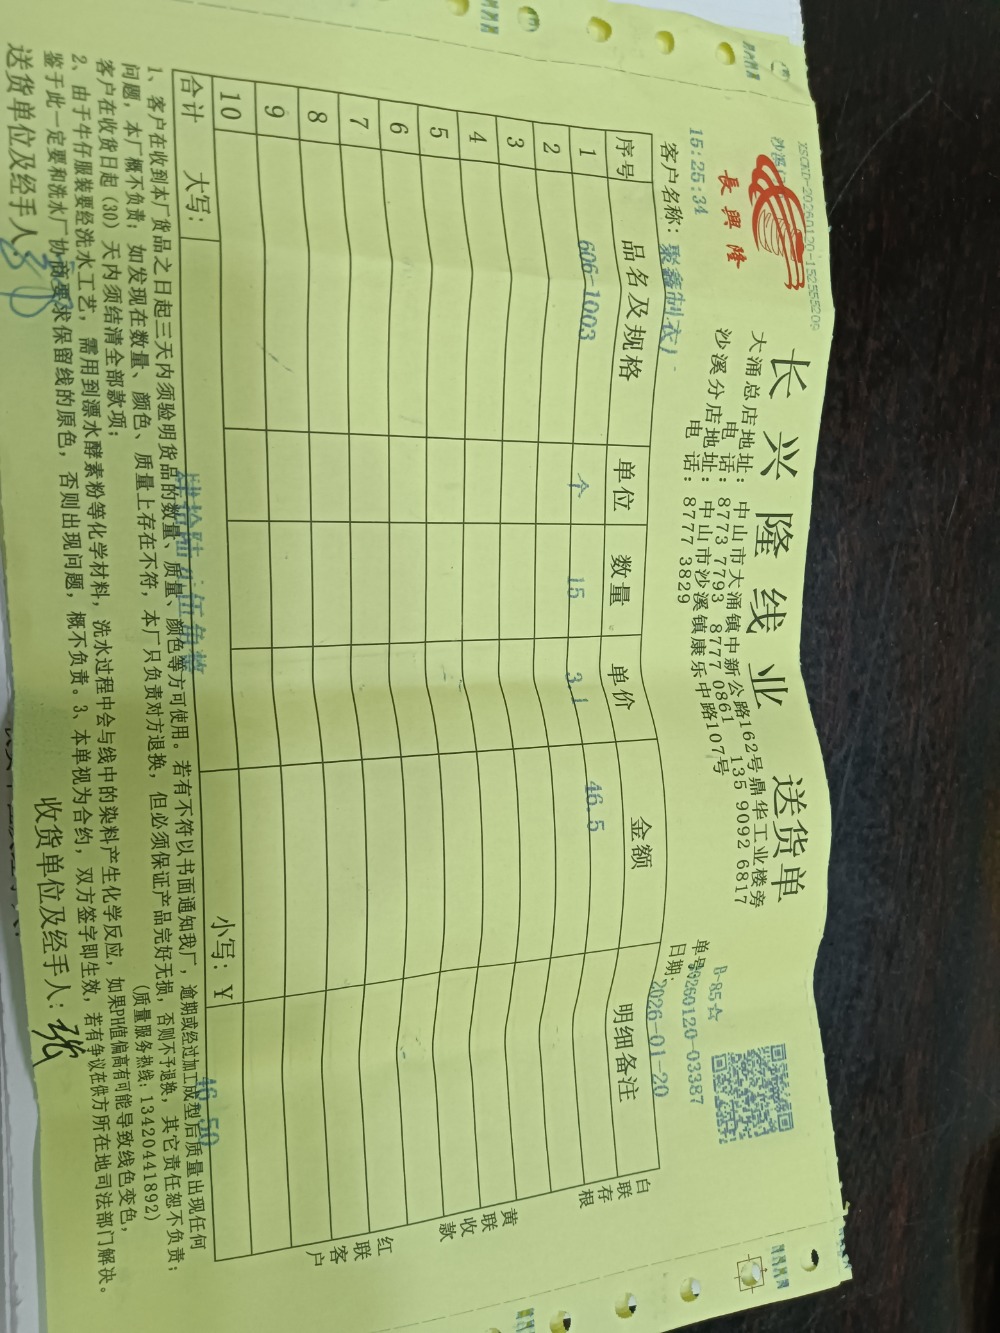 XSCKD-20260120-152555209
長興隆
长兴隆线业 送货单
大涌总店地址: 中山市大涌镇中新公路162号鼎华工业楼旁
电 话: 8773 7793 8777 0861 135 9092 6817
沙溪分店地址: 中山市沙溪镇康乐中路107号
电 话: 8777 3829
B-85☆
单号: 20260120-03387
15:25:34
日期: 2026-01-20
客户名称: 聚鑫制衣厂
序号 品名及规格 单位 数量 单价 金额 明细备注
1 606-1003 个 15 3.1 46.5
2
3
4
5
6
7
8
9
10
合计 大写: 肆拾陆元伍角整 小写: ¥ 46.50
白联存根
黄联收款
红联客户
1、客户在收到本厂货品之日起三天内须验明货品的数量、质量、颜色等方可使用。若有不符以书面通知我厂, 逾期或经过加工成型后质量出现任何
问题, 本厂概不负责; 如发现在数量、颜色、质量上存在不符, 本厂只负责对方退换, 但必须保证产品完好无损, 否则不予退换, 其它责任恕不负责;
客户在收货日起 (30) 天内须结清全部款项; (质量服务热线: 13420441892)
2、由于牛仔服装要经洗水工艺, 需用到漂水酵素粉等化学材料, 洗水过程中会与线中的染料产生化学反应, 如果PH值偏高有可能导致线色变色,
鉴于此一定要和洗水厂协商要求保留线的原色, 否则出现问题, 概不负责。3、本单视为合约, 双方签字即生效, 若有争议在供方所在地司法部门解决。
送货单位及经手人: 收货单位及经手人: 张